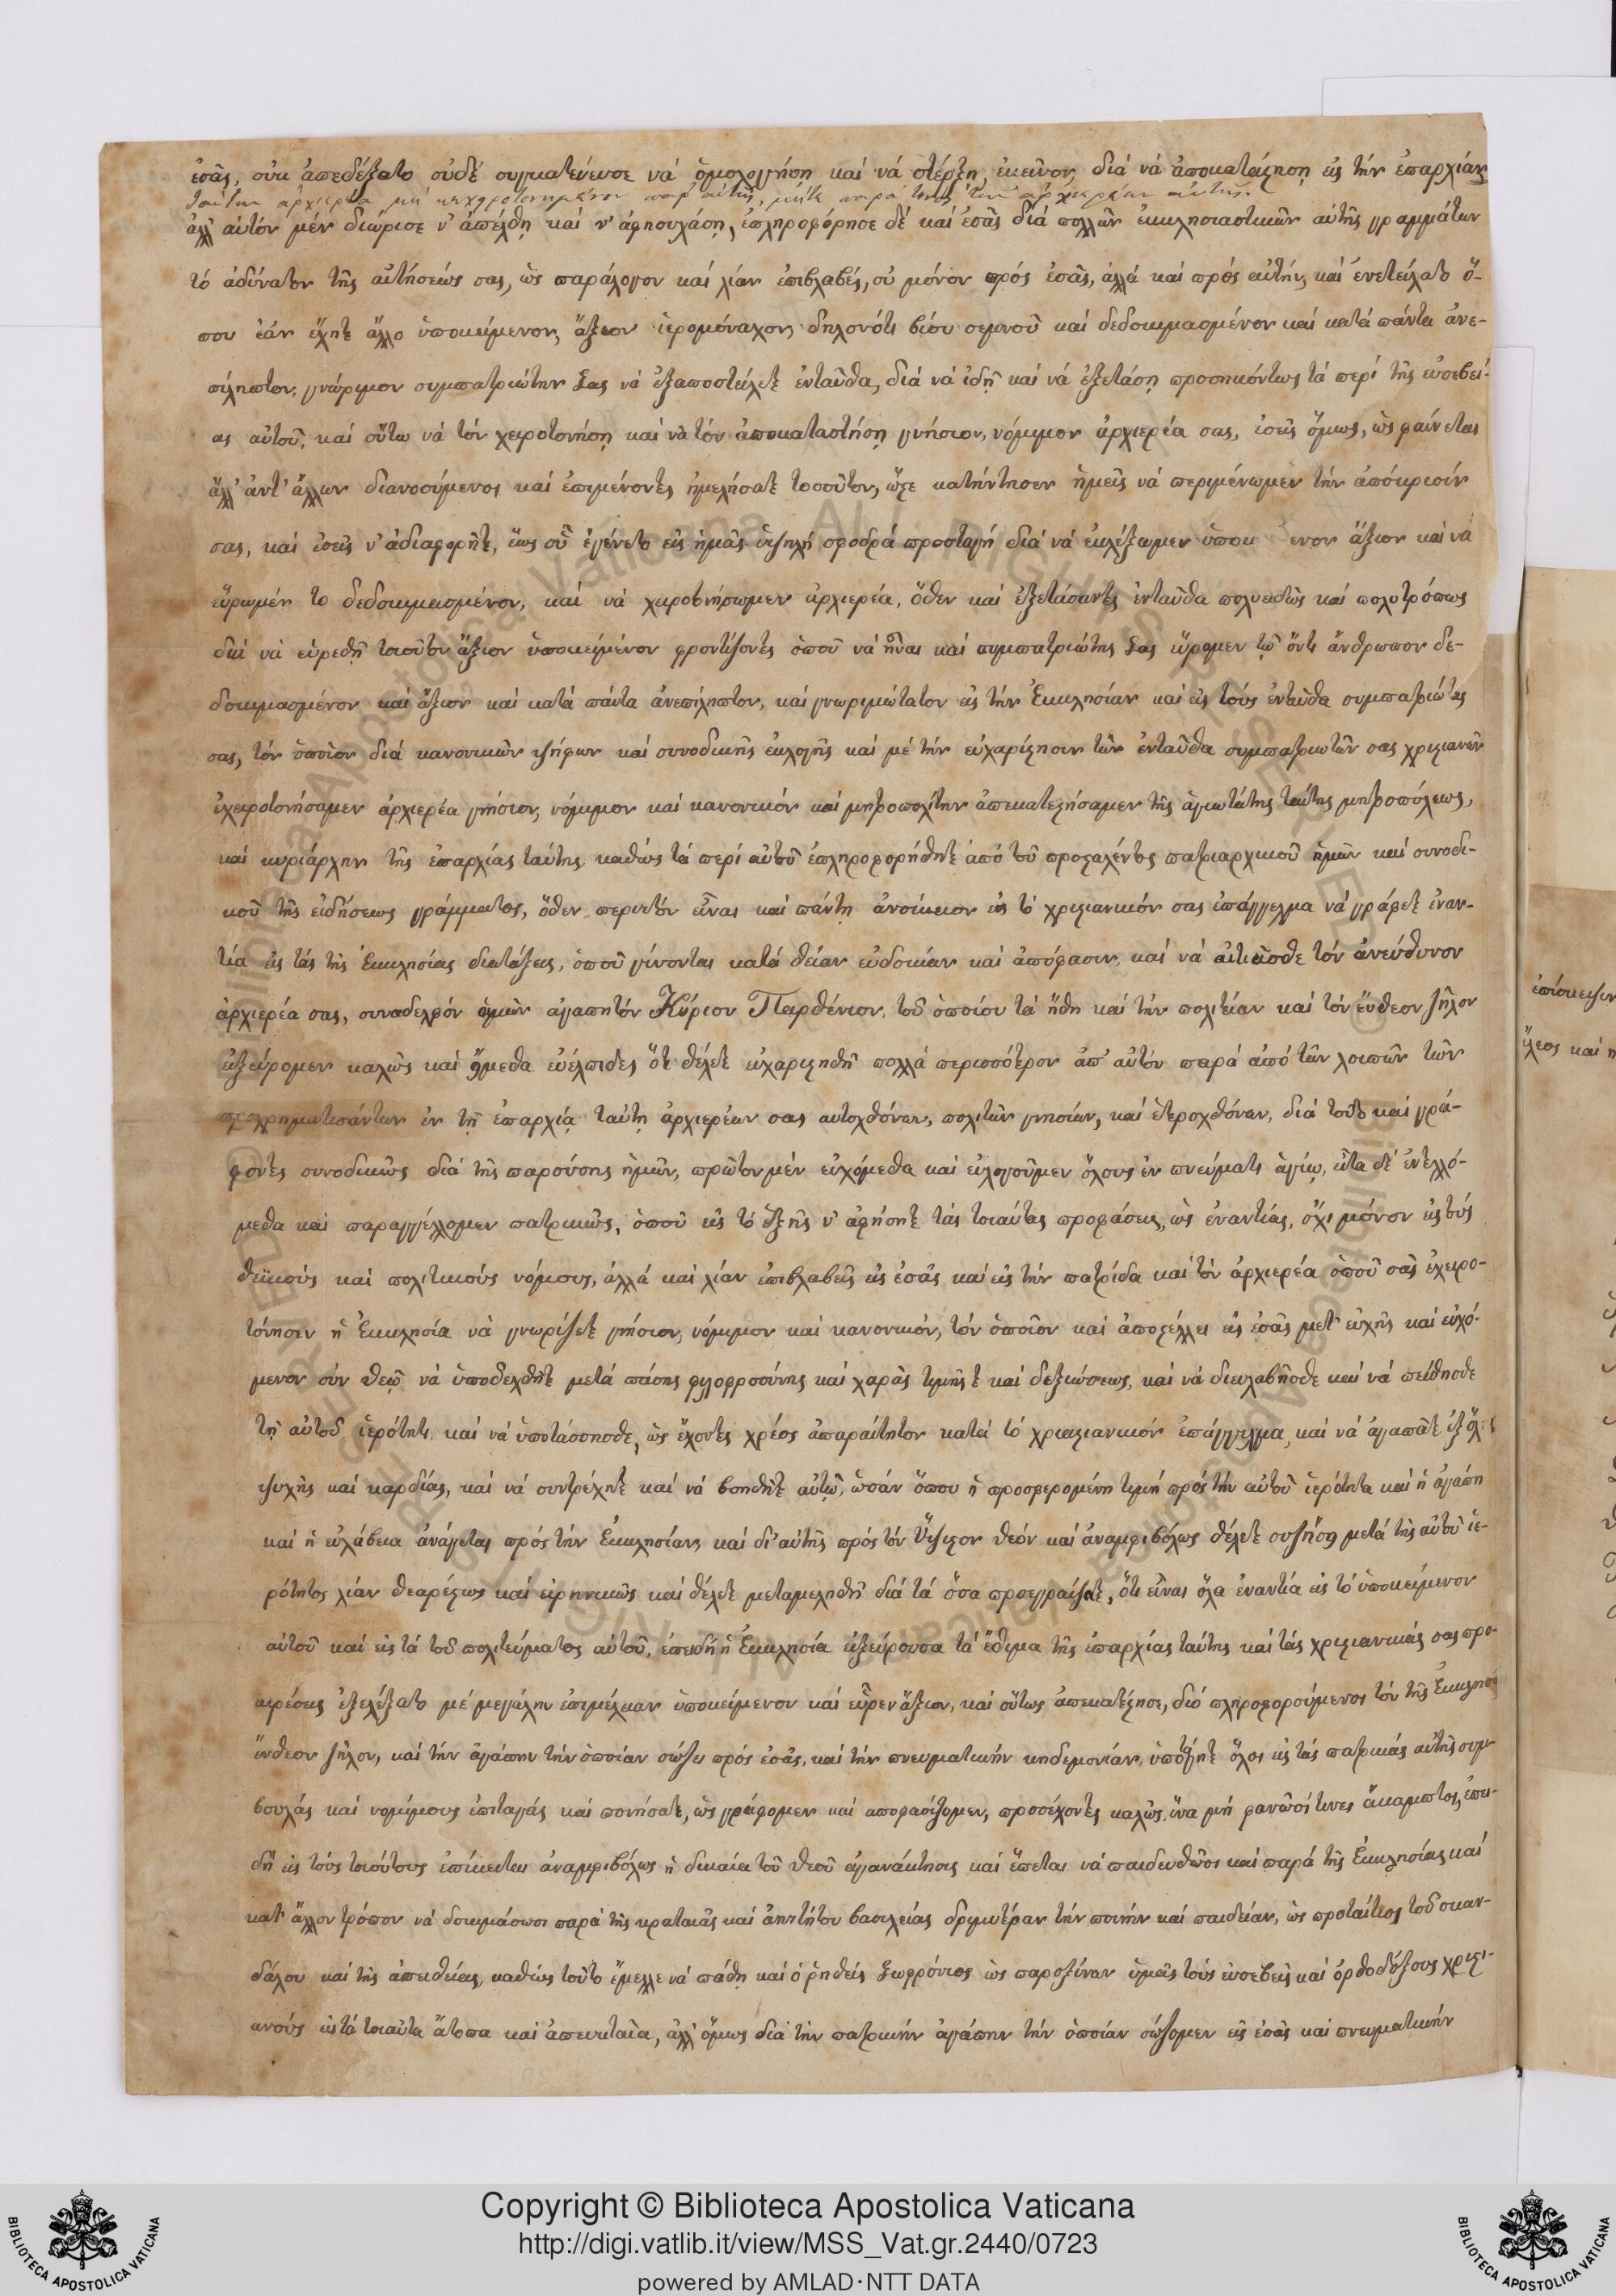 ἐσᾶς, οὐκ ἀπεδέξατο οὐδέ συγκατένευσε νά ὁμολογήσῃ καί νά στέρξῃ ἐκεῖνον διά νά ἀποκαταστήσῃ εἰς τήν ἐπαρχίαν
ταύτην ἀρχιερέα μή κεχειροτονημένον παρ' αὐτῆς, μήτε παρά τινος τῶν ἀρχιερέων αὐτῆς.
ἀλλ' αὐτόν μέν διώρισε ν' ἀπέλθῃ καί ν' ἀφησυχάσῃ, ἐπληροφόρησε δέ καί ἐσᾶς διά πολλῶν ἐκκλησιαστικῶν αὐτῆς γραμμάτων
τό ἀδύνατον τῆς αἰτήσεώς σας, ὡς παράλογον καί λίαν ἐπιβλαβές, οὐ μόνον πρός ἐσᾶς, ἀλλά καί πρός αὐτήν, καί ἐνετείλατο ὅ-
που ἐάν ἔχητε ἄλλο ὑποκείμενον, ἄξιον ἱερομόναχον, δηλονότι βίου σεμνοῦ καί δεδοκιμασμένον καί κατά πάντα ἀνε-
πίληπτον, γνώριμον συμπατριώτην σας νά ἐξαποστείλετε ἐνταῦθα, διά νά ἰδῇ καί νά ἐξετάσῃ προσηκόντως τά περί τῆς εὐσεβεί-
ας αὐτοῦ, καί οὕτω νά τόν χειροτονήσῃ καί νά τόν ἀποκαταστήσῃ γνήσιον, νόμιμον ἀρχιερέα σας, ἐσεῖς ὅμως, ὡς φαίνεται
ἄλλ' ἀντ' ἄλλων διανοούμενοι καί ἐπιμένοντες ἠμελήσατε τοσοῦτον, ὥστε κατήντησεν ἡμεῖς νά περιμένωμεν τήν ἀπόκρισίν
σας, καί ἐσεῖς ν' ἀδιαφορῆτε, ἕως οὗ ἐγένετο εἰς ἡμᾶς ὑψηλή σφοδρά προσταγή διά νά ἐκλέξωμεν ὑποκ ενον ἄξιον καί νά
εὕρωμέν το δεδοκιμασμένον, καί νά χειροτονήσωμεν ἀρχιερέα, ὅθεν καί ἐξετάσαντες ἐνταῦθα πολυειδῶς καί πολυτρόπως
διά νά εὑρεθῇ τοιοῦτον ἄξιον ὑποκείμενον φροντίζοντες ὁποῦ νά ἦναι καί συμπατριώτης σας εὕρομεν τῷ ὄντι ἄνθρωπον δε-
δοκιμασμένον καί ἄξιον καί κατά πάντα ἀνεπίληπτον, καί γνωριμώτατον εἰς τήν Ἐκκλησίαν καί εἰς τούς ἐνταῦθα συμπατριώτας
σας, τόν ὁποῖον διά κανονικῶν ψήφων καί συνοδικῆς ἐκλογῆς καί μέ τήν εὐχαρίστησιν τῶν ἐνταῦθα συμπατριωτῶν σας χριστιανῶν
ἐχειροτονήσαμεν ἀρχιερέα γνήσιον, νόμιμον καί κανονικόν καί μητροπολίτην ἀπεκατεστήσαμεν τῆς ἁγιωτάτης ταύτης μητροπόλεως,
καί κυριάρχην τῆς ἐπαρχίας ταύτης, καθώς τά περί αὐτοῦ ἐπληροφορήθητε ἀπό τοῦ προσταλέντος πατριαρχικοῦ ἡμῶν καί συνοδι-
κοῦ τῆς εἰδήσεως γράμματος, ὅθεν περιττόν εἶναι καί πάντη ἀνοίκειον εἰς τό χριστιανικόν σας ἐπάγγελμα νά γράφετε ἐναν-
τία εἰς τάς τῆς Ἐκκλησίας διατάξεις, ὁποῦ γίνονται κατά θείαν εὐδοκίαν καί ἀπόφασιν, καί νά αἰτιᾶσθε τόν ἀνεύθυνον
ἀρχιερέα σας, συναδελφόν ἡμῶν ἀγαπητόν Κύριον Παρθένιον, τοῦ ὁποίου τά ἤθη καί τήν πολιτείαν καί τόν ἔνθεον ζῆλον
ἐξεύρομεν καλῶς καί ἤμεθα εὐέλπιδες ὅτι θέλετε εὐχαριστηθῆ πολλά περισσότερον ἀπ' αὐτόν παρά ἀπό τῶν λοιπῶν τῶν
προχρηματισάντων ἐν τῇ ἐπαρχίᾳ ταύτῃ ἀρχιερέων σας αυτοχθόνων, πολιτῶν γνησίων, καί ἑτεροχθόνων, διά τοῦτο καί γρά-
φοντες συνοδικῶς διά τῆς παρούσης ἡμῶν, πρῶτον μέν εὐχόμεθα καί εὐλογοῦμεν ὅλους ἐν πνεύματι ἁγίῳ, εἶτα δέ ἐντελλό-
μεθα καί παραγγέλλομεν πατρικῶς, ὁποῦ εἰς τό ἑξῆς ν' ἀφήσητε τάς τοιαύτας προφάσεις, ὡς ἐναντίας, ὄχι μόνον εἰς τούς
θεϊκούς καί πολιτικούς νόμους, ἀλλά καί λίαν ἐπιβλαβεῖς εἰς ἐσᾶς καί εἰς τήν πατρίδα καί τόν ἀρχιερέα ὁποῦ σᾶς ἐχειρο-
τόνησεν ἡ Ἐκκλησία νά γνωρίζετε γνήσιον, νόμιμον καί κανονικόν, τόν ὁποῖον καί ἀποστέλλει εἰς ἐσᾶς μετ' εὐχῆς καί εὐχό-
μενον σύν θεῷ νά ὑποδεχθῆτε μετά πάσης φιλοφροσύνης καί χαρᾶς τιμῆς τε καί δεξιώσεως, καί νά διευλαβῆσθε καί νά πείθησθε
τῇ αὐτοῦ ἱερότητι, καί νά ὑποτάσσησθε, ὡς ἔχοντες χρέος ἀπαραίτητον κατά τό χριστιανικόν ἐπάγγελμα, καί νά ἀγαπᾶτε ἐξ ὅλης
ψυχῆς καί καρδίας, καί νά συντρέχητε καί νά βοηθῆτε αὐτῷ, ὡσάν ὅπου ἡ προσφερομένη τιμή πρός τήν αὐτοῦ ἱερότητα καί ἡ ἀγάπη
καί ἡ εὐλάβεια ἀνάγεται πρός τήν Ἐκκλησίαν, καί δι' αὐτῆς πρός τόν Ὕψιστον θεόν καί ἀναμφιβόλως θέλετε συζήσῃ μετά τῆς αὐτοῦ ἱε-
ρότητος λίαν θεαρέστως καί εἰρηνικῶς καί θέλετε μεταμεληθῆ διά τά ὅσα προεγράψατε, ὅτι εἶναι ὅλα ἐναντία εἰς τό ὑποκείμενον
αὐτοῦ καί εἰς τά τοῦ πολιτεύματος αὐτοῦ, ἐπειδή ἡ Ἐκκλησία ἐξεύρουσα τά ἔθιμα τῆς ἐπαρχίας ταύτης καί τάς χριστιανικάς σας προ-
αιρέσεις ἐξελέξατο μέ μεγάλην ἐπιμέλειαν ὑποκείμενον καί εὗρεν ἄξιον, καί οὕτως ἀπεκατέστησε, διό πληροφορούμενοι τόν τῆς Ἐκκλησί
ἔνθεον ζῆλον, καί τήν ἀγάπην τήν ὁποίαν σώζει πρός ἐσᾶς, καί τήν πνευματικήν κηδεμονίαν, ὑποταγῆτε ὅλοι εἰς τάς πατρικάς αὐτῆς συμ
βουλάς καί νομίμους ἐπιταγάς καί ποιήσατε, ὡς γράφομεν καί αποφασίζομεν, προσέχοντες καλῶς, ἵνα μή φανῶσί τινες ἄκαμπτοι, ἐπει-
δή εἰς τούς τοιούτους ἐπίκειται ἀναμφιβόλως ἡ δικαία τοῦ θεοῦ ἀγανάκτησις καί ἕπεται νά παιδευθῶσι καί παρά τῆς Ἐκκλησίας καί
κατ' ἄλλον τρόπον νά δοκιμάσωσι παρά τῆς κραταιᾶς καί ἀηττήτου βασιλείας δριμυτέραν τήν ποινήν καί παιδείαν, ὡς πρωταίτιοι τοῦ σκαν-
δάλου καί τῆς ἀπειθείας, καθώς τοῦτο ἔμελλε νά πάθῃ καί ὁ ῥηθείς Σωφρόνιος ὡς παροξύνων ὑμᾶς τούς εὐσεβεῖς καί ὀρθοδόξους χριστι-
ανούς εἰς τά τοιαῦτα ἄτοπα καί ἀπευκταῖα, ἀλλ' ὅμως διά τήν πατρικήν ἀγάπην τήν ὁποίαν σώζομεν εἰς ἐσᾶς καί πνευματικήν
Copyright © Biblioteca Apostolica Vaticana
http://digi.vatlib.it/view/MSS_Vat.gr.2440/0723
powered by AMLAD·NTT DATA